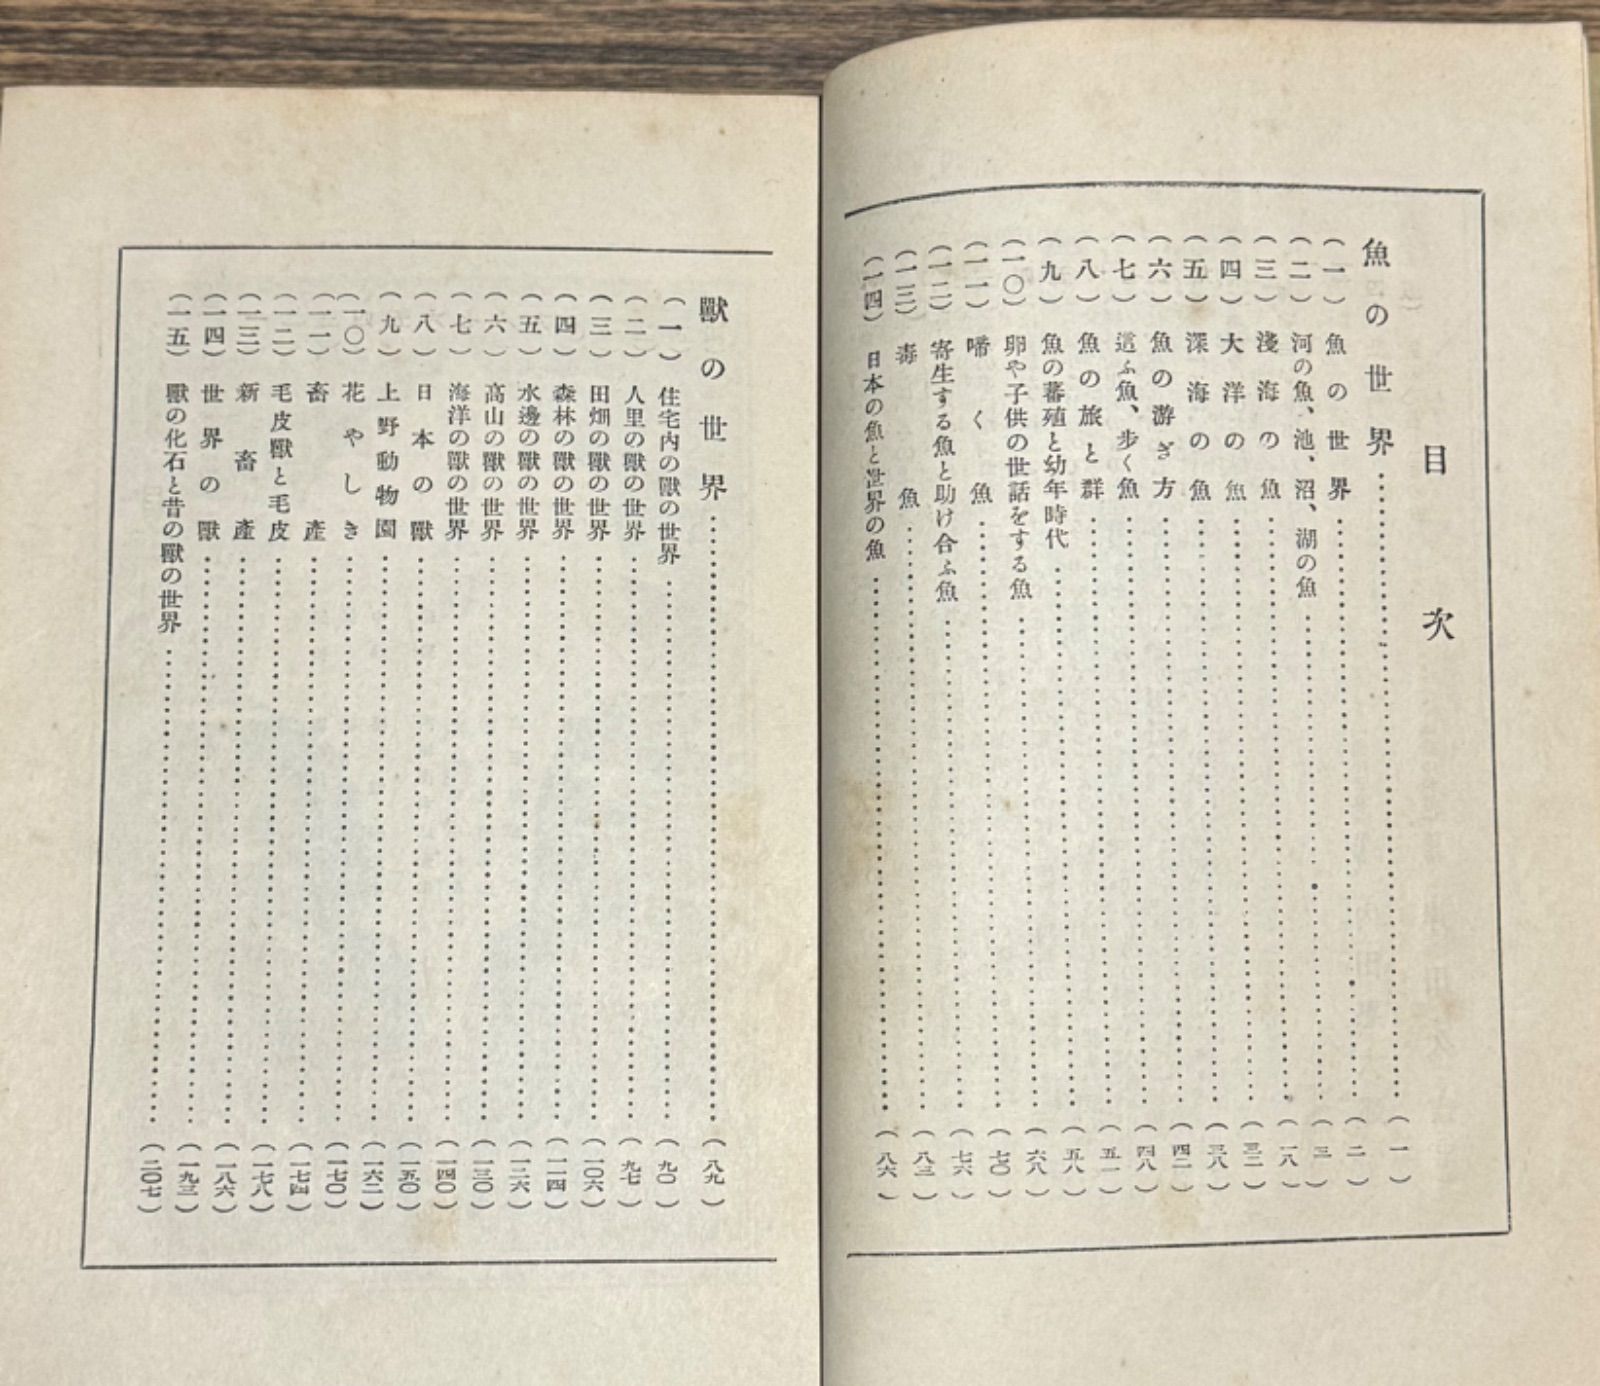 目次
魚の世界……(一)
(一)魚の世界……(二)
(二)河の魚、池、沼、湖の魚……(三)
(三)淺海の魚……(一八)
(四)大洋の魚……(三二)
(五)深海の魚……(三八)
(六)魚の游ぎ方……(四二)
(七)這ふ魚、步く魚……(四八)
(八)魚の旅と群……(五一)
(九)魚の蕃殖と幼年時代……(五八)
(一〇)卵や子供の世話をする魚……(六八)
(一一)啼く魚……(七〇)
(一二)寄生する魚と助け合ふ魚……(七六)
(一三)毒魚……(八三)
(一四)日本の魚と世界の魚……(八六)
獸の世界……(八九)
(一)住宅内の獸の世界……(九〇)
(二)人里の獸の世界……(九七)
(三)田畑の獸の世界……(一〇六)
(四)森林の獸の世界……(一一四)
(五)水邊の獸の世界……(一二六)
(六)高山の獸の世界……(一三〇)
(七)海洋の獸の世界……(一四〇)
(八)日本の獸……(一五〇)
(九)上野動物園……(一六二)
(一〇)花やしき……(一七〇)
(一一)畜產……(一七四)
(一二)毛皮獸と毛皮……(一七八)
(一三)新畜產……(一八六)
(一四)世界の獸……(一九三)
(一五)獸の化石と昔の獸の世界……(二〇七)